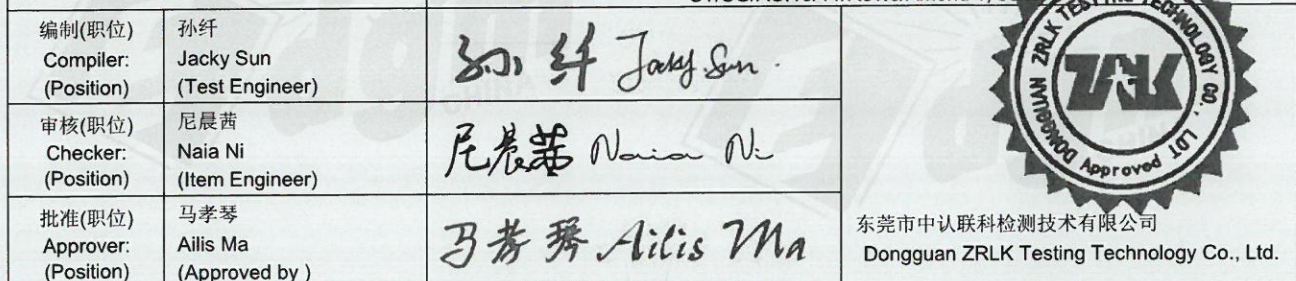 编制(职位)
Compiler:
(Position)
孙纤
Jacky Sun
(Test Engineer)
孙纤 Jacky Sun.
审核(职位)
Checker:
(Position)
尼晨茜
Naia Ni
(Item Engineer)
尼晨茜 Naia Ni
批准(职位)
Approver:
(Position)
马孝琴
Ailis Ma
(Approved by )
马孝琴 Ailis Ma
DONGGUAN ZRLK TESTING TECHNOLOGY CO., LDT
ZRLK
Approved
东莞市中认联科检测技术有限公司
Dongguan ZRLK Testing Technology Co., Ltd.